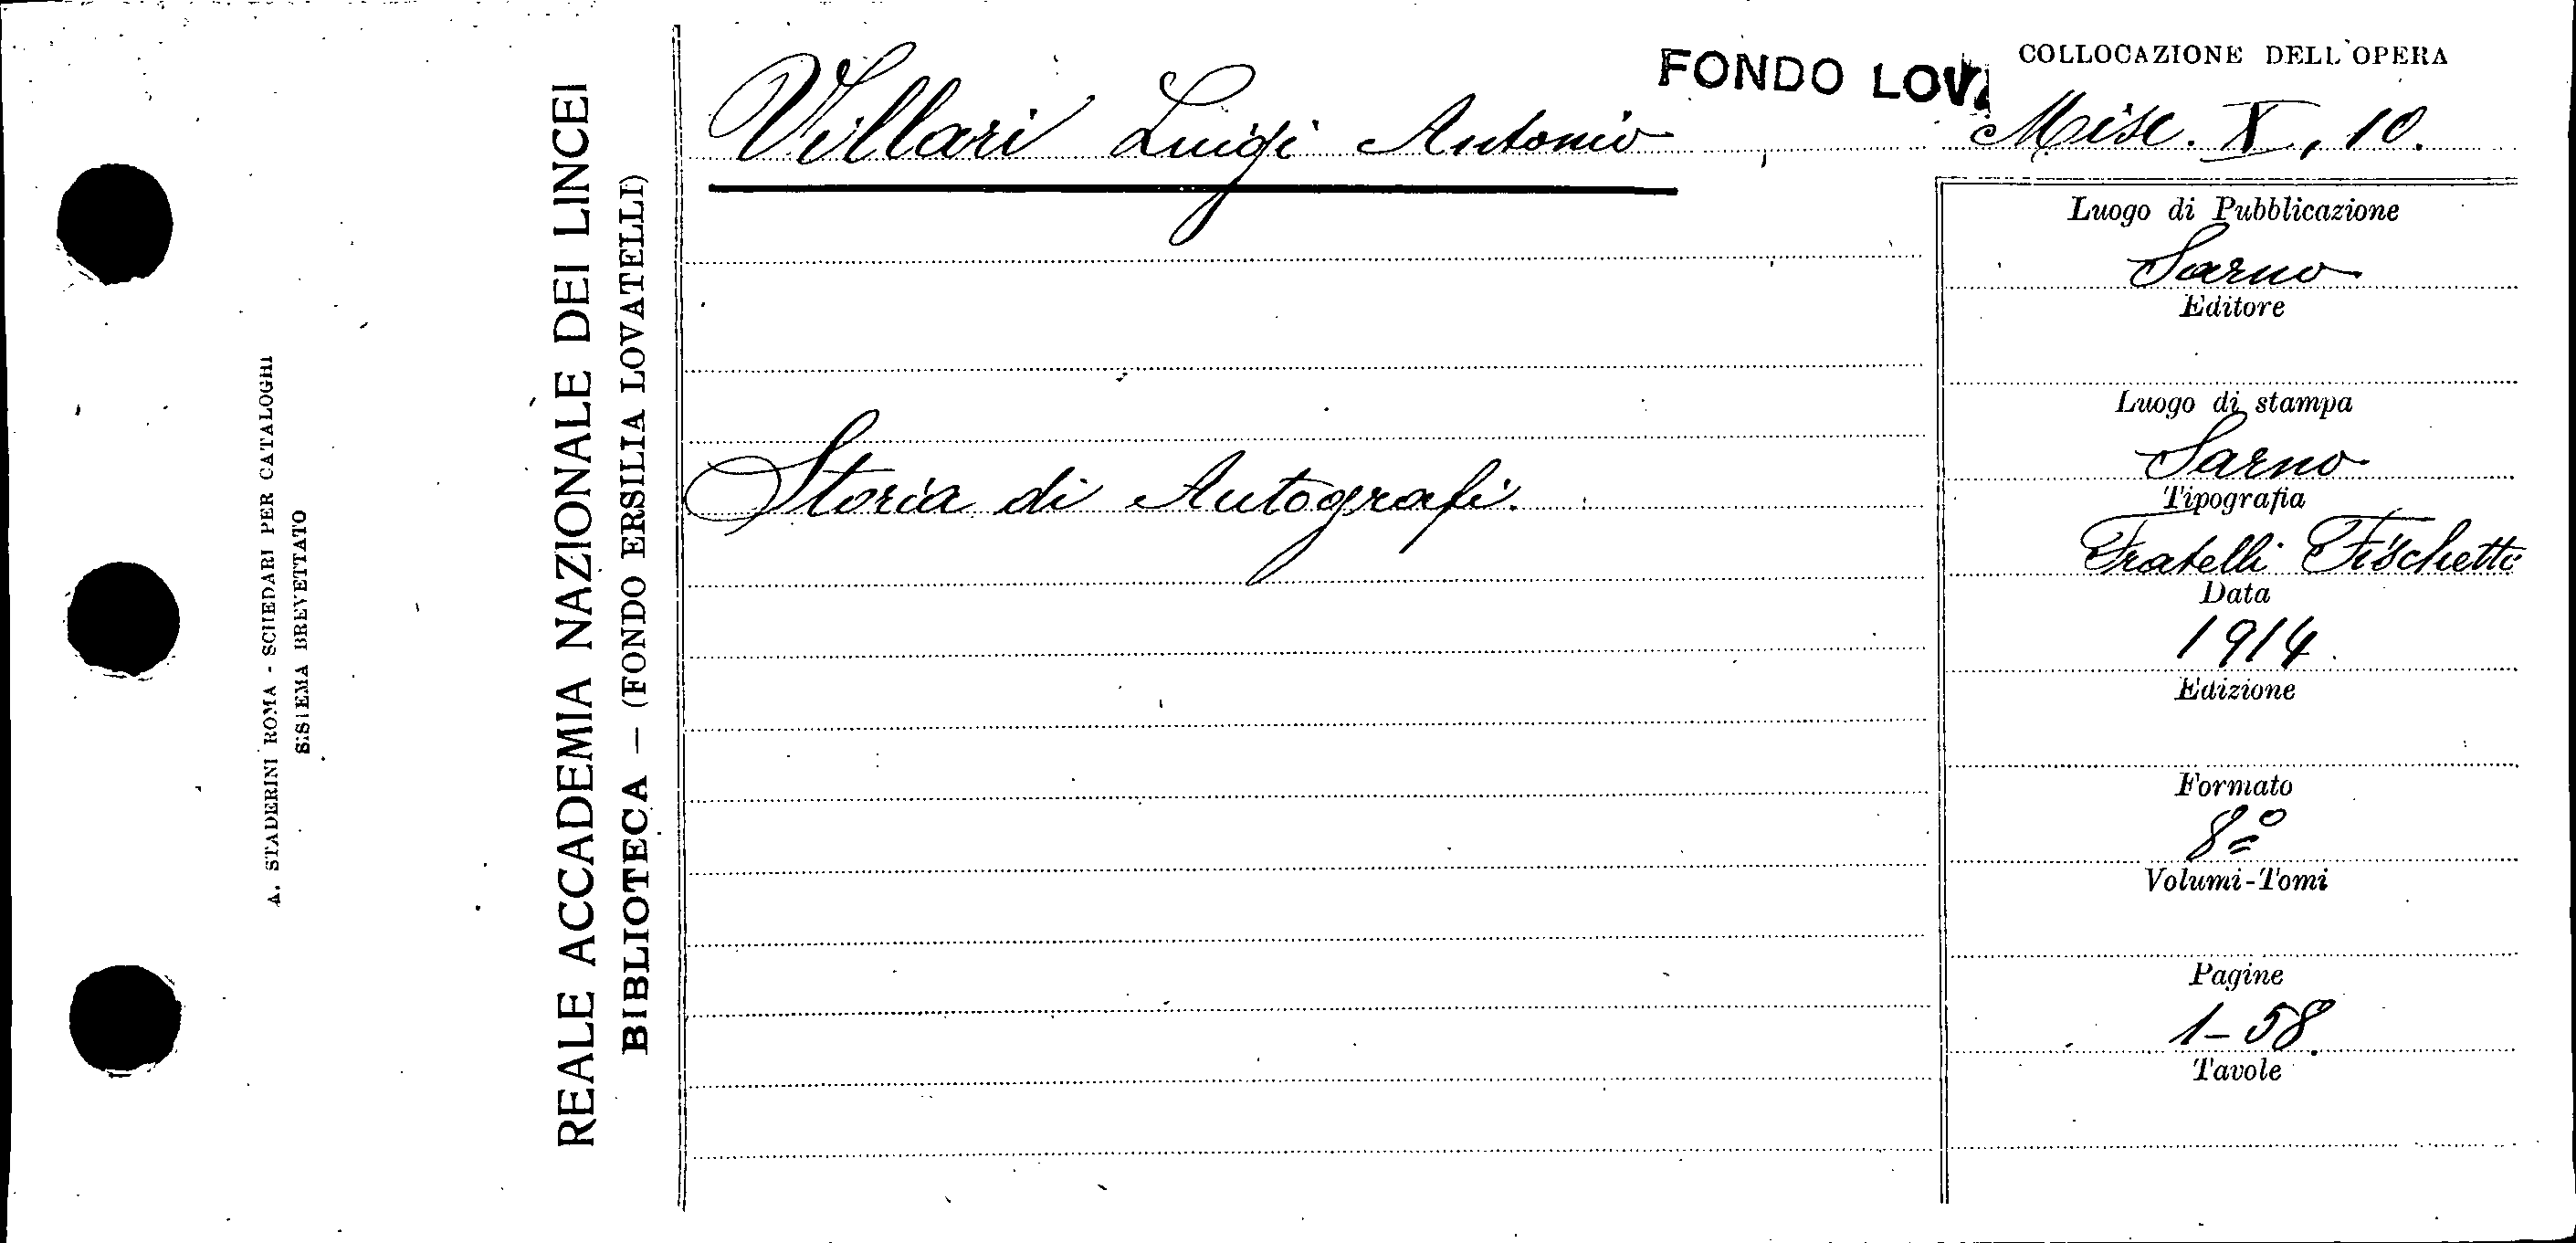 A. STADERINI ROMA - SCHEDARI PER CATALOGHI
SISTEMA BREVETTATO
REALE ACCADEMIA NAZIONALE DEI LINCEI
BIBLIOTECA — (FONDO ERSILIA LOVATELLI)
FONDO
Villari Luigi Antonio
Storia di Autografi.
COLLOCAZIONE DELL'OPERA
Misc. X, 10.
Luogo di Pubblicazione
Sarno
Editore
Luogo di stampa
Sarno
Tipografia
Fratelli Fischetti
Data
1914
Edizione
Formato
8º
Volumi-Tomi
Pagine
1-58
Tavole